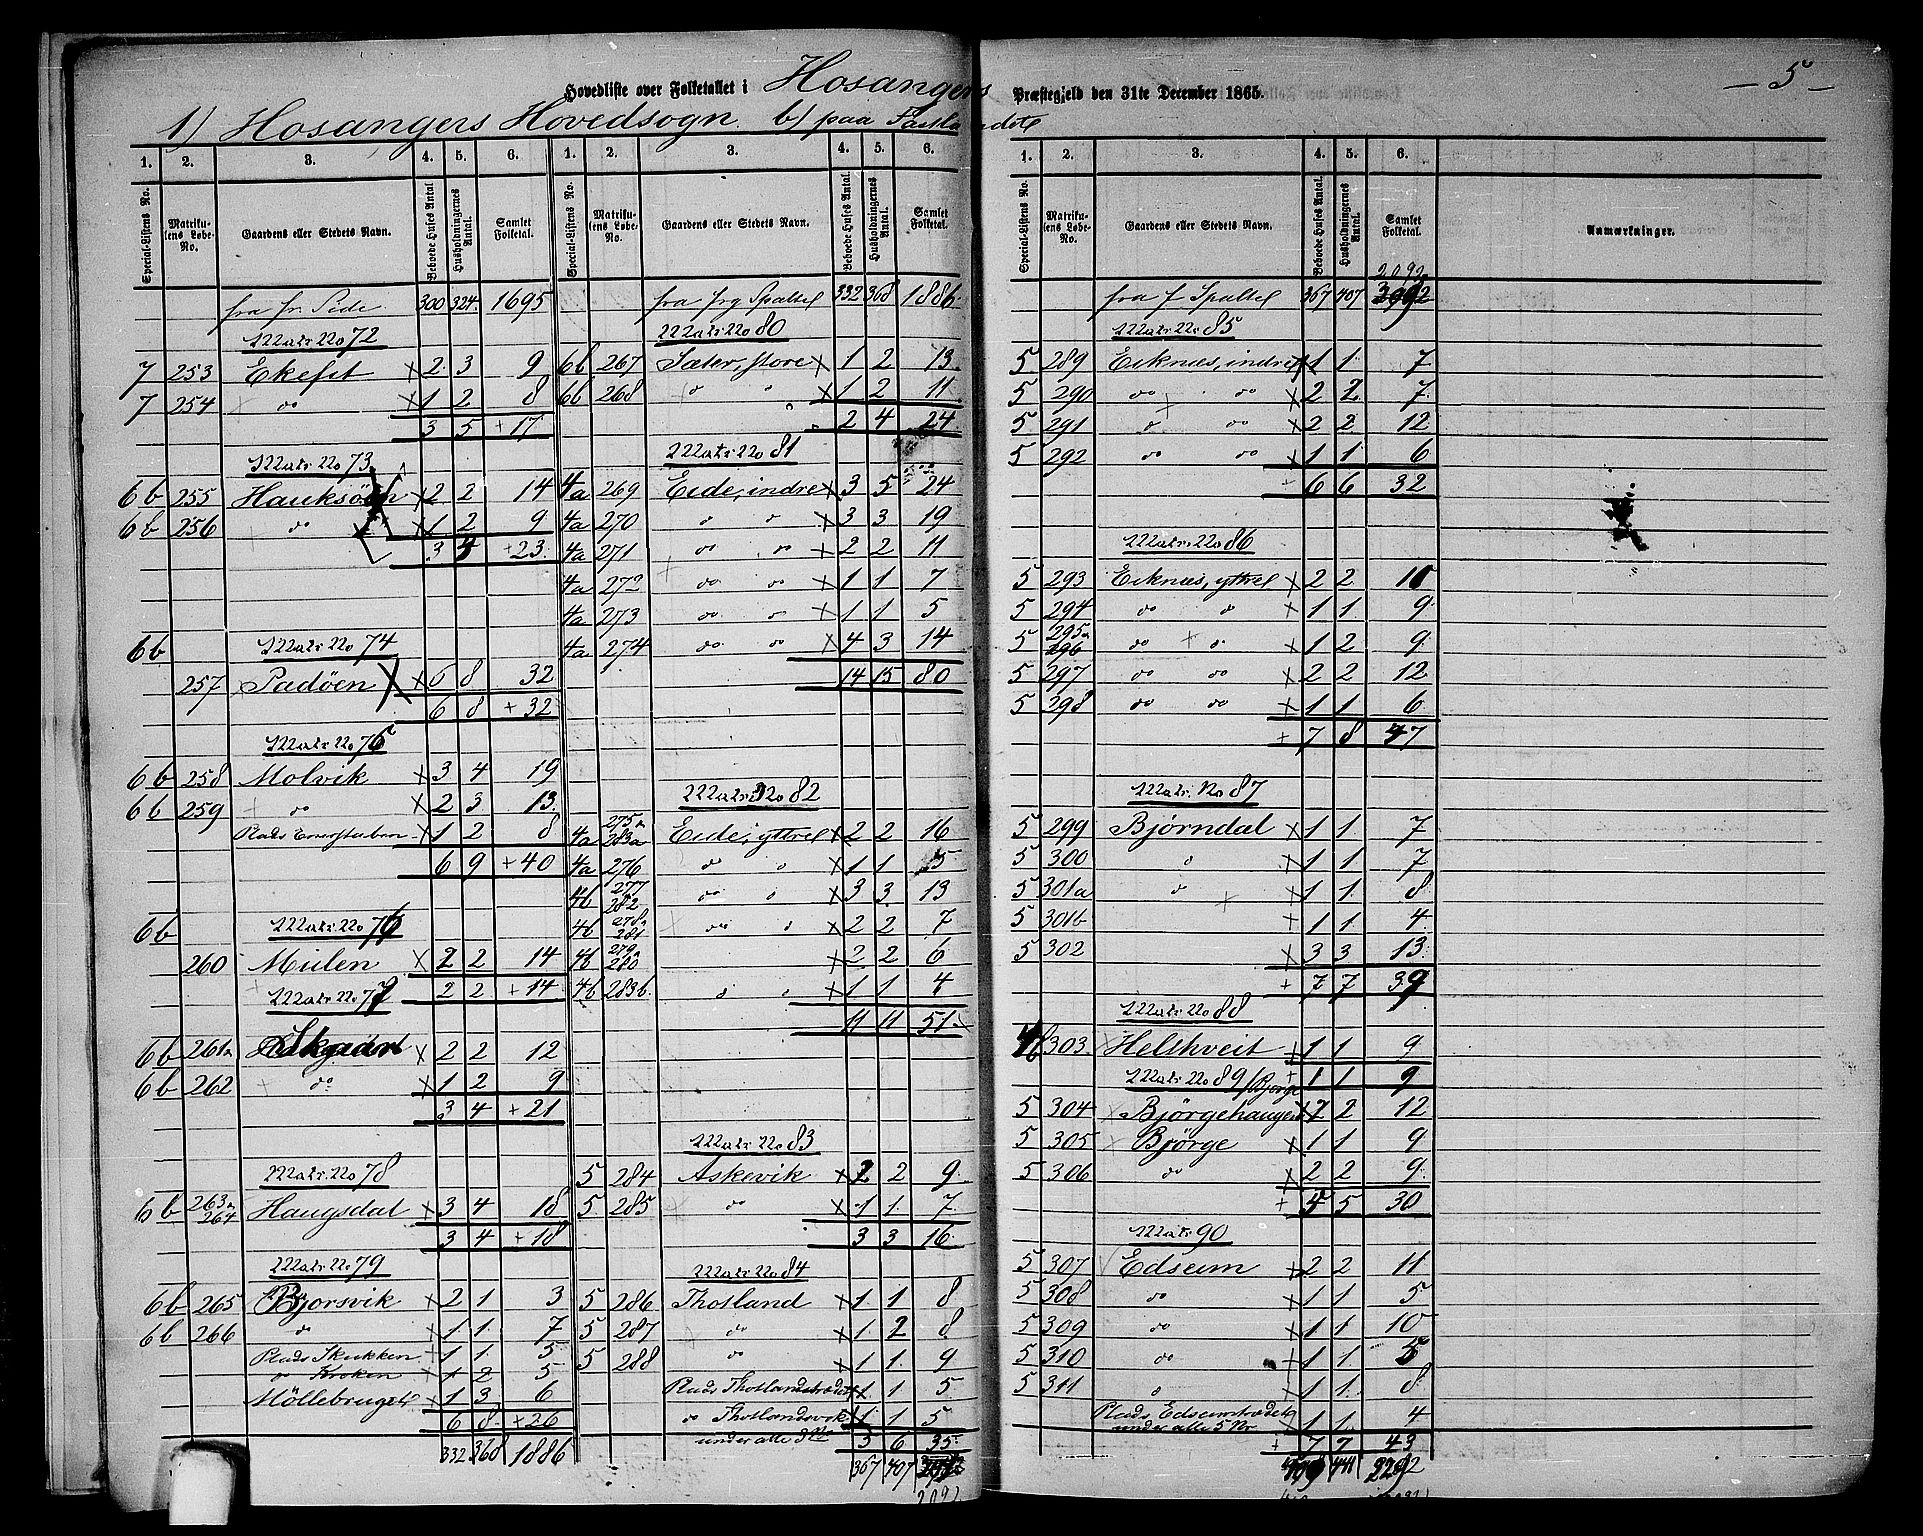 — 5 —
Hovedliste over Folketallet i Hosangers Præstegjeld den 31te December 1865.
1) Hosangers Hovedsogn. b) paa Fastlandet
1. 2. 3. 4. 5. 6.
Special-Listens No. Matrikulens Løbe-No. Gaardens eller Stedets Navn. Beboede Huses Antal Husholdningernes Antal. Samlet Folketal.
fra fr. Side 300 324 1695
Matr No 72
7 253 Ekefet x 2 3 9
7 254 do x 1 2 8
3 5 + 17
Matr No 73
6b 255 Hauksöen x 2 2 14
6b 256 do x 1 2 9
3 4 + 23
6b Matr No 74
257 Padöen x 6 8 32
6 8 + 32
Matr No 75
6b 258 Molvik x 3 4 19
6b 259 do x 2 3 13
Plads x 1 2 8
6 9 + 40
6b Matr No 76
260 Mulen x 2 2 14
2 2 + 14
Matr No 77
6b 261a x 2 2 12
6b 262 do x 1 2 9
3 4 + 21
Matr No 78
6b 263a 264 Haugsdal x 3 4 18
3 4 + 18
Matr No 79
6b 265 Bjorsvik x 2 1 3
6b 266 do x 1 1 7
Plads Skukken 1 1 5
do Kroken 1 2 5
Möllebruget x 1 3 6
6 8 + 26
332 368 1886
1. 2. 3. 4. 5. 6.
Special-Listens No. Matrikulens Løbe-No. Gaardens eller Stedets Navn. Beboede Huses Antal. Husholdningernes Antal. Samlet Folketal.
fra frg Spalte 332 368 1886
Matr No 80
6b 267 Sæter, store x 1 2 13
6b 268 do do x 1 2 11
2 4 24
Matr No 81
4a 269 Eide, indre x 3 5 24
4a 270 do do x 3 3 19
4a 271 do do x 2 2 11
4a 272 do do x 1 1 7
4a 273 do do x 1 1 5
4a 274 do do x 4 3 14
14 15 80
Matr No 82
4a 275a 283a Eide, yttre x 2 2 16
4a 276 do do x 1 1 5
4b 277 282 do do x 3 3 13
4b 278a 281 do do x 2 2 7
4b 279a 280 x 2 2 6
4b 283b do do x 1 1 4
11 11 51
Matr No 83
5 284 Askevik x 2 2 9
5 285 do x 1 1 7
3 3 16
Matr No 84
5 286 Thotland x 1 1 8
5 287 do x 1 2 8
5 288 do x 1 1 9
Plads 1 1 5
do Thotlandsvik 1 1 5
under alle 3 No 5 6 35
367 407
2092
1. 2. 3. 4. 5. 6.
Special-Listens No. Matrikulens Løbe-No. Gaardens eller Stedets Navn. Beboede Huses Antal. Husholdningernes Antal. Samlet Folketal. Anmærkninger.
2092
fra f Spalte 367 407
Matr No 85
5 289 Eiknæs, indre x 1 1 7
5 290 do do x 2 2 7
5 291 do do x 2 2 12
5 292 do do x 1 1 6
6 6 32
Matr No 86
5 293 Eiknæs, yttre x 2 2 10
5 294 do do x 1 1 9
5 295a 296 do x 1 2 9
5 297 do do x 2 2 12
5 298 do do x 1 1 6
+ 7 8 47
Matr. No 87
5 299 Bjørndal x 1 1 7
5 300 do x 1 1 7
5 301a do x 1 1 8
5 301b 1 1 4
5 302 x 3 3 13
+ 7 7 39
Matr No 88
4b 303 Helthveit x 1 1 9
Matr No 89 / Bjørge + 1 1 9
5 304 x Bjørgehaugen x 2 2 12
5 305 x Bjørge x 1 1 9
5 306 do x 2 2 9
+ 5 5 30
Matr 90
5 307 Edseim x 2 2 11
5 308 do x 1 1 5
5 309 do x 1 1 10
5 310 do x 1 1 5
5 311 do x 1 1 8
Plads Edseimstrædet 1 1 4
under alle 5 Nr.
+ 7 7 43
441 2292